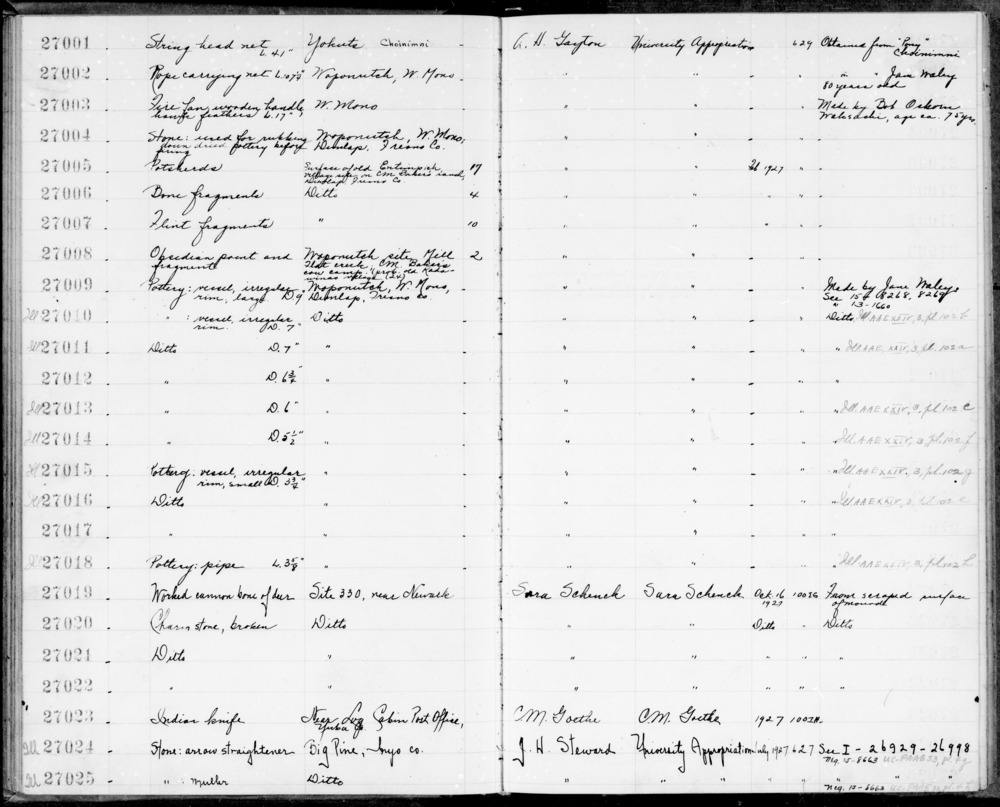 27001 - String head net L. 41" Yokuts Choinimni - A. H. Gayton University Appropriation 629 Obtained from "Pony" Choinimni
27002 - Rope carrying net Woponutch, W. Mono - " " - " " " Jane Waley 80 years old
27003 - Fire fan, wooden handle, hawk feathers L. 17" W. Mono - " " - " Made by Bob Osborn age ca. 75 yrs.
27004 - Stone: used for rubbing down dried pottery before firing Woponutch, W. Mono, Dunlap, Fresno Co. - " " - "
27005 - Potsherds Surface of old Entimbich village site, on C.M. Bakers ranch, Dunlap, Fresno Co. 17 " " 1927 "
27006 - Bone fragments Ditto 4 " " " "
27007 - Flint fragments " 10 " " " "
27008 - Obsidian point and fragments Woponutch site, Mill Flat creek, C.M. Bakers cow camp. 2 " " " "
27009 - Pottery: vessel, irregular rim, large D. 9" Woponutch, W. Mono, Dunlap, Fresno Co. - " " - " Made by Jane Waley. See 15- 8268, 8269 " 13-1660
Ill 27010 - " : vessel, irregular rim. D. 7" Ditto - " " - " Ditto Ill AAE XXIV, 3, pl. 102 b
Ill 27011 - Ditto D. 7" " - " " - " " Ill. AAE XXIV, 3, pl. 102 a
27012 - " D. 6 3/4" " - " " - " "
Ill 27013 - " D. 6" " - " " - " " Ill. AAE XXIV, 3, pl. 102 c
Ill 27014 - " D. 5 1/2" " - " " - " " Ill. AAE XXIV, 3, pl. 102 f
Ill 27015 - Pottery: vessel, irregular rim, small D. 3 3/4" " - " " - " " Ill. AAE XXIV, 3, pl. 102 g
Ill 27016 - Ditto " - " " - " " Ill AAE XXIV, 3, pl. 102 e
27017 - " " - " " - " "
Ill 27018 - Pottery: pipe L. 3 5/8" " - " " - " " Ill. AAE XXIV, 3, pl. 102 h
27019 - Worked cannon bone of deer Site 330, near Newark - Sara Schenck Sara Schenck Oct. 16 1927 1003G From scraped surface of mound
27020 - Charm stone, broken Ditto - " " Ditto " Ditto
27021 - Ditto " - " " " " "
27022 - " " - " " " " "
27023 - Indian knife Near Log Cabin Post Office, Yuba Co. - C.M. Goethe C.M. Goethe 1927 1003H.
Ill 27024 - Stone: arrow straightener Big Pine, Inyo Co. - J. H. Steward University Appropriation July 1927 627 See I - 26929 - 26998 Neg. 15-8663
Ill 27025 - " : muller Ditto - " " " " " Neg. 15-8663